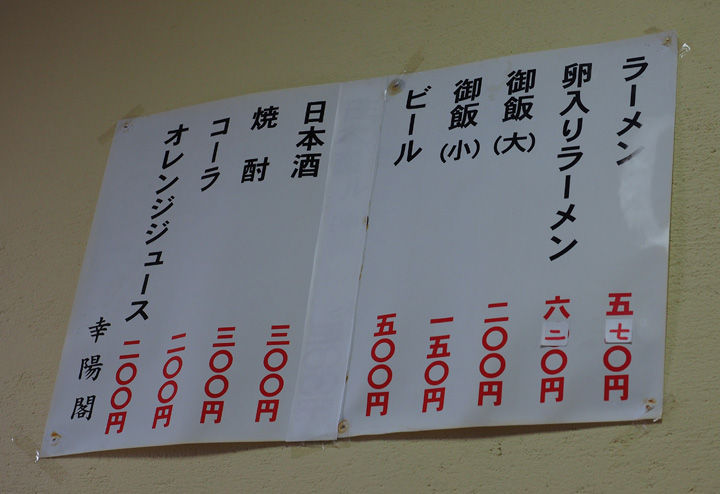 ラーメン 五七〇円
卵入りラーメン 六二〇円
御飯(大) 二〇〇円
御飯(小) 一五〇円
ビール 五〇〇円
日本酒 三〇〇円
焼酎 三〇〇円
コーラ 二〇〇円
オレンジジュース 二〇〇円
幸陽閣